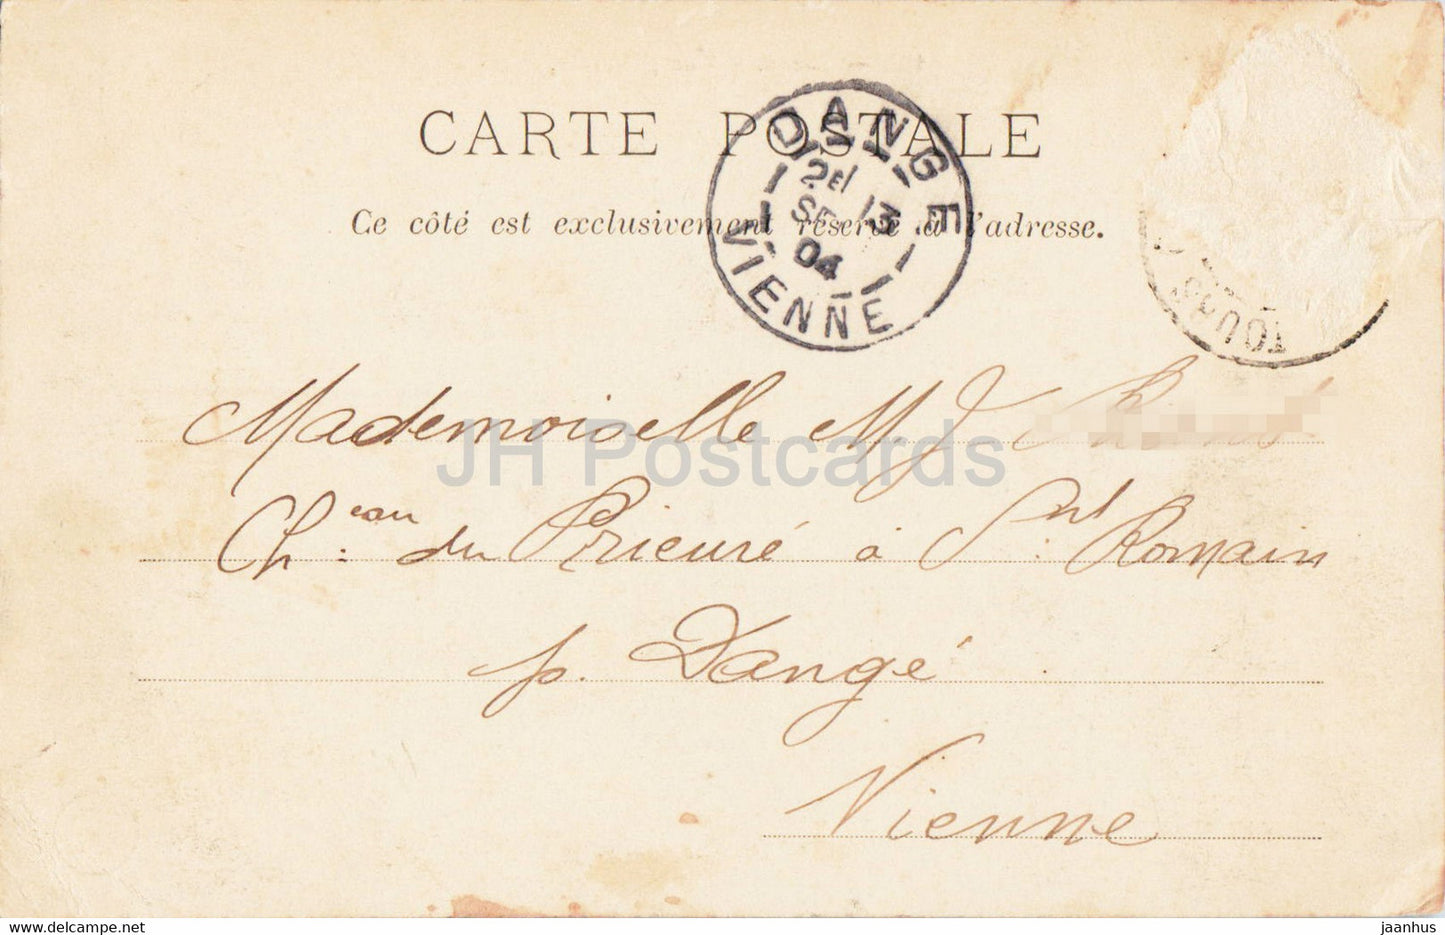 CARTE POSTALE
Ce côté est exclusivement réservé à l'adresse.
DANGE
2E 13
SEPT
04
VIENNE
TOURS
Mademoiselle M. J.
Ch.eau du Prieuré à St. Romain
p. Dangé
Vienne
JH Postcards
www.delcampe.net
jaanhus